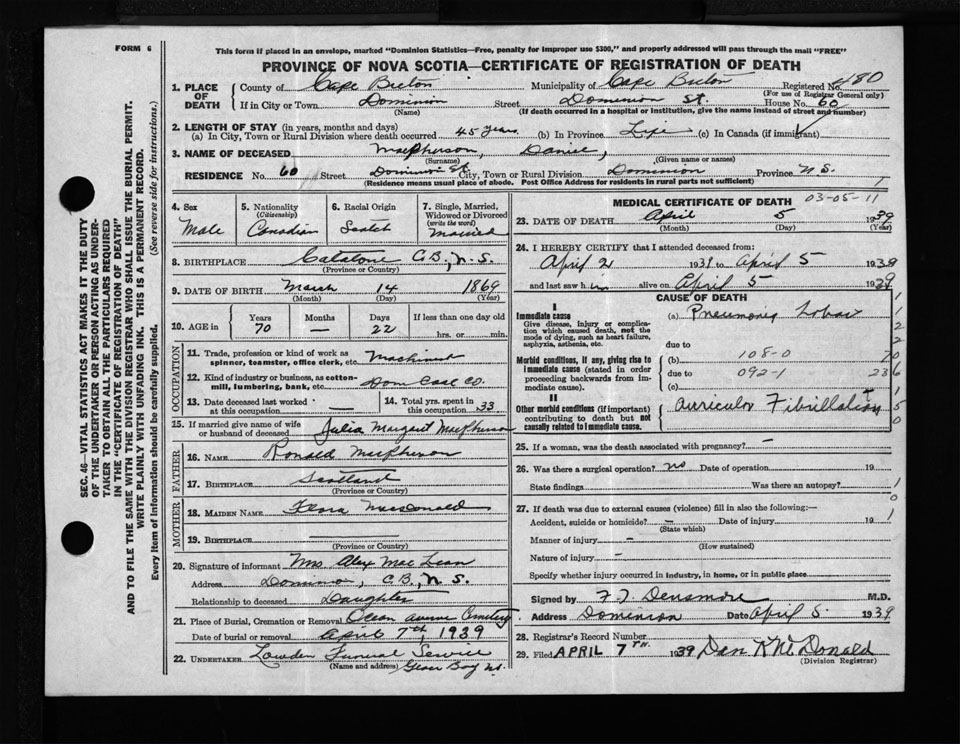 FORM 6
This form if placed in an envelope, marked "Dominion Statistics—Free, penalty for improper use $300," and properly addressed will pass through the mail "FREE"
PROVINCE OF NOVA SCOTIA—CERTIFICATE OF REGISTRATION OF DEATH
SEC. 46—VITAL STATISTICS ACT MAKES IT THE DUTY
OF THE UNDERTAKER OR PERSON ACTING AS UNDER-
TAKER TO OBTAIN ALL THE PARTICULARS REQUIRED
IN THE "CERTIFICATE OF REGISTRATION OF DEATH"
AND TO FILE THE SAME WITH THE DIVISION REGISTRAR WHO SHALL ISSUE THE BURIAL PERMIT.
WRITE PLAINLY WITH UNFADING INK. THIS IS A PERMANENT RECORD.
Every item of information should be carefully supplied. (See reverse side for instructions.)
1. PLACE OF DEATH County of Cape Breton Municipality of Cape Breton Registered No. 480
(For use of Registrar General only)
If in City or Town Dominion Street Dominion St. House No. 60
(Name) (If death occurred in a hospital or institution, give the name instead of street and number)
2. LENGTH OF STAY (in years, months and days)
(a) In City, Town or Rural Division where death occurred 45 years (b) In Province Life (c) In Canada (if immigrant)
3. NAME OF DECEASED MacPherson, Daniel,
(Surname) (Given name or names)
RESIDENCE No. 60 Street Dominion St City, Town or Rural Division Dominion Province N.S.
(Residence means usual place of abode. Post Office Address for residents in rural parts not sufficient) 1
4. Sex Male
5. Nationality (Citizenship) Canadian
6. Racial Origin Scotch
7. Single, Married, Widowed or Divorced (write the word) Married
8. BIRTHPLACE Catalone C.B., N.S.
(Province or Country)
9. DATE OF BIRTH March 14 1869
(Month) (Day) (Year)
10. AGE in Years 70 Months — Days 22 If less than one day old hrs. or min.
OCCUPATION
11. Trade, profession or kind of work as spinner, teamster, office clerk, etc. Machinist
12. Kind of industry or business, as cotton-mill, lumbering, bank, etc. Dom Coal Co.
13. Date deceased last worked at this occupation —
14. Total yrs. spent in this occupation 33
15. If married give name of wife or husband of deceased Julia Margaret MacPherson
FATHER
16. NAME Ronald MacPherson
17. BIRTHPLACE Scotland
(Province or Country)
MOTHER
18. MAIDEN NAME Flora MacDonald
19. BIRTHPLACE —
(Province or Country)
20. Signature of informant Mrs. Alex MacLean
Address Dominion, C.B., N.S.
Relationship to deceased Daughter
21. Place of Burial, Cremation or Removal Ocean Avenue Cemetery
Date of burial or removal April 7th, 1939
22. UNDERTAKER Lowden Funeral Service
(Name and address) Glace Bay NS.
MEDICAL CERTIFICATE OF DEATH 03-05-11
23. DATE OF DEATH April 5 1939
(Month) (Day) (Year)
24. I HEREBY CERTIFY that I attended deceased from:
April 2 1939 to April 5 1939
and last saw him alive on April 5 1939
CAUSE OF DEATH
I
Immediate cause (a) Pneumonia Lobar
Give disease, injury or complication which caused death, not the mode of dying, such as heart failure, asphyxia, asthenia, etc.
due to
Morbid conditions, if any, giving rise to immediate cause (stated in order proceeding backwards from immediate cause).
(b) 108-0
due to 092-1 236
(c)
II
Other morbid conditions (if important) contributing to death but not causally related to immediate cause.
Auricular Fibrillation
25. If a woman, was the death associated with pregnancy? —
26. Was there a surgical operation? no Date of operation 19
State findings Was there an autopsy?
27. If death was due to external causes (violence) fill in also the following:—
Accident, suicide or homicide? — Date of injury 19
(State which)
Manner of injury —
(How sustained)
Nature of injury —
Specify whether injury occurred in industry, in home, or in public place
Signed by F. J. Densmore M.D.
Address Dominion Date April 5 1939
28. Registrar's Record Number
29. Filed APRIL 7TH. 1939 Dan R McDonald
(Division Registrar)